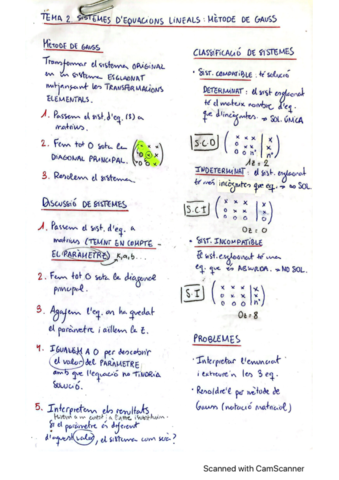 TEMA 2. SISTEMES D'EQUACIONS LINEALS: MÈTODE DE GAUSS
MÈTODE DE GAUSS
Transformar el sistema ORIGINAL
en un sistema ESGLAONAT
mitjançant les TRANSFORMACIONS
ELEMENTALS.
1. Passem el sist. d'eq. (S) a
matrius.
2. Fem tot 0 sota la
DIAGONAL PRINCIPAL.
3. Resolem el sistema.
DISCUSSIÓ DE SISTEMES
1. Passem el sist. d'eq. a
matrius (TENINT EN COMPTE
EL PARÀMETRE) K, a, b...
2. Fem tot 0 sota la diagonal
principal.
3. Agafem l'eq. on ha quedat
el paràmetre i aïllem la Z.
4. IGUALEM A 0 per descobrir
el valor del PARÀMETRE
amb que l'equació no TINDRIA
SOLUCIÓ.
5. Interpretem els resultats.
Si el paràmetre és diferent
d'aquest valor, el sistema com serà?
CLASSIFICACIÓ DE SISTEMES
• SIST. COMPATIBLE: té solució
DETERMINAT: el sist. esglaonat
té el mateix nombre d'eq.
que d'incògnites → SOL. ÚNICA
S.C.D
1z = 2
INDETERMINAT: el sist. esglaonat
té més incògnites que eq. → ∞ SOL.
S.C.I
0z = 0
• SIST. INCOMPATIBLE
El sist. esglaonat té una
eq. que és ABSURDA. → NO SOL.
S.I
0z = 8
PROBLEMES
• Interpretar l'enunciat
i extreure'n les 3 eq.
• Resoldre'l pel mètode de
Gauss (notació matricial)
Scanned with CamScanner